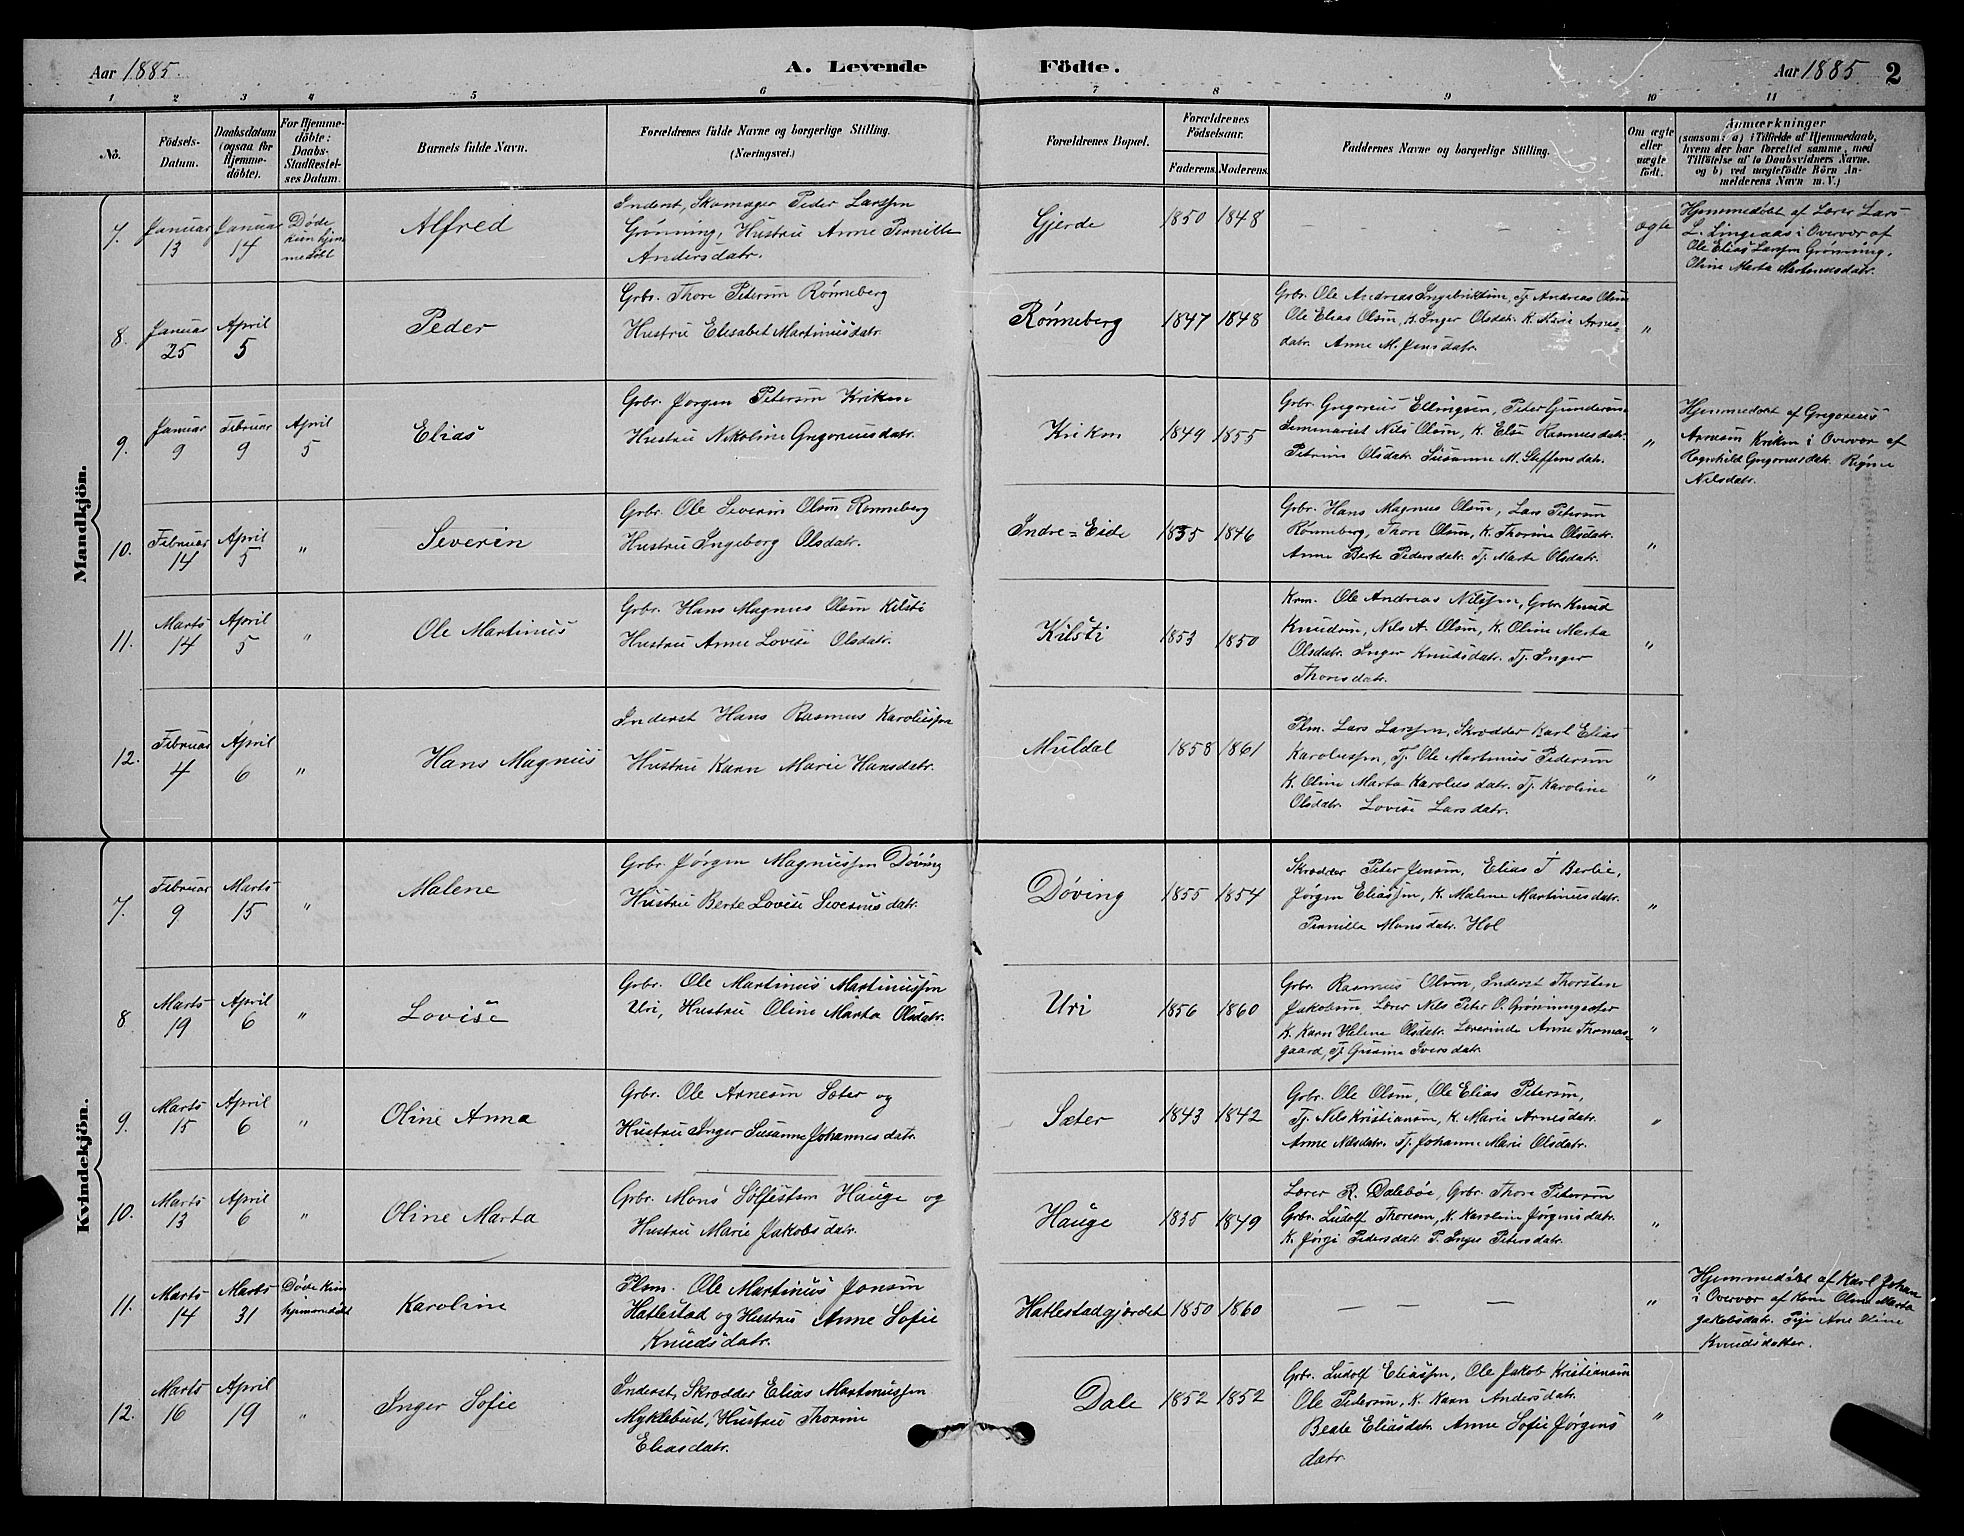 Aar 1885. A. Levende Födte. Aar 1885 2
1 2 3 4 5 6 7 8 9 10 11
No.
Födsels-Datum.
Daabsdatum (ogsaa for Hjemme-döbte).
For Hjemme-döbte: Daabs-Stadfæstel-ses Datum.
Barnets fulde Navn.
Forældrenes fulde Navne og borgerlige Stilling.
(Næringsvei.)
Forældrenes Bopæl.
Forældrenes Födselsaar.
Faderens. Moderens.
Faddernes Navne og borgerlige Stilling.
Om ægte eller uægte födt.
Anmærkninger
(saasom: a) i Tilfælde af Hjemmedaab,
hvem der har forrettet samme, med
Tilföielse af to Daabsvidners Navne,
og b) ved uægtefödte Börn An-
melderens Navn m. V.)
Mandkjön.
7. Januar 13 Januar 14 Døde kun hjem medøbt
Alfred
Inderst, Skomager Peder Larssen
Grønning, Hustru Anne Pernille
Andersdatr.
Gjerde 1850 1848 – – – ægte
Hjemmedøbt af Lærer Lars
L. Lingaas i Overvær af
Ole Elias Larssen Grønning,
Oline Marta Martinusdatr.
8. Januar 25 April 5
Peder
Grbr. Thore Petersen Rønneberg
Hustru Elisabet Martinusdatr.
Rønneberg 1847 1848
Grbr. Ole Andreas Ingebriktsen, Tj. Andreas Olsen
Ole Elias Olsen, K. Inger Olsdatr. K. Marie Arnes-
datr. Anne M. Jensdatr.
"
9. Januar 9 Februar 9 April 5
Elias
Grbr. Jørgen Petersen Kriken
Hustru Nikoline Gregoriusdatr.
Kriken 1849 1855
Grbr. Gregorius Ellingsen, Peter Gundersen
Seminarist Nils Olsen, K. Else Rasmusdatr.
Petrine Olsdatr. Susanne M. Steffensdatr.
"
Hjemmedøbt af Gregorius
Arnesen Kriken i Overvær af
Ragnhild Gregoriusdatr.
Nilsdatr.
10. Februar 14 April 5 "
Severin
Grbr. Ole Severin Olsen Rønneberg
Hustru Ingeborg Olsdatr.
Indre=Eide 1835 1846
Grbr. Hans Magnus Olsen, Lars Petersen
Rønneberg, Thore Olsen, K. Thorine Olsdatr.
Anne Berte Pedersdatr. Tj. Marta Olsdatr.
"
11. Marts 14 April 5 "
Ole Martinus
Grbr. Hans Magnus Olsen Kilsti
Hustru Anne Lovise Olsdatr.
Kilsti 1853 1850
Krm. Ole Andreas Nilssen, Grbr. Knud
Knudsen, Nils A. Olsen, K. Oline Marta
Olsdatr. Inger Knudsdatr. Tj. Inger
Thoresdatr.
"
12. Februar 4 April 6 "
Hans Magnus
Inderst Hans Rasmus Karolussen
Hustru Karn Marie Hansdatr.
Muldal 1858 1861
Plm. Lars Larssen, Skrædder Karl Elias
Karolussen, Tj. Ole Martinus Pedersen
K. Oline Marta Karolusdatr. Tj. Karoline
Olsdatr. Lovise Larsdatr.
"
Kvindekjön.
7. Februar 9 Marts 15 "
Malene
Grbr. Jørgen Magnussen Døving
Hustru Berte Lovise Severinsdatr.
Døving 1855 1854
Skrædder Peter Jensen, Elias T Berlie,
Jørgen Eliassen, K. Malene Martinusdatr.
Pernille Monsdatr. Hol
"
8 Marts 19 April 6 "
Lovise
Grbr. Ole Martinus Martinussen
Uri, Hustru Oline Marta Olsdatr.
Uri 1856 1860
Grbr. Rasmus Olsen, Inderst Thorsten
Jakobsen, Lærer Nils Peter O. Grønningsæter
K. Karn Helene Olsdatr. Lærerinde Anne Thomas-
gaard, Tj. Gurine Iversdatr.
"
9. Marts 15 April 6 "
Oline Anna
Grbr. Ole Arnesen Sæter og
Hustru Inger Susanne Johannesdatr.
Sæter 1843 1842
Grbr. Ole Olsen, Ole Elias Petersen,
Tj. Nils Kristiansen, K. Marie Arnesdatr.
Anne Nilsdatr. Tj. Johanne Marie Olsdatr.
"
10. Marts 13 April 6 "
Oline Marta
Grbr. Mons Sølfestsen Hauge og
Hustru Marie Jakobsdatr.
Hauge 1835 1849
Lærer R. Dalebøe, Grbr. Thore Petersen
Grbr. Ludolf Thoresen, K. Karoline Jørgensdatr.
K. Jørgi Pedersdatr. P. Inger Petersdatr.
"
11. Marts 14 Marts 31 Døde kun hjemmedøbt
Karoline
Plsm. Ole Martinus Jonsen
Hatlestad og Hustru Anne Sofie
Knudsdatr.
Hatlestadgjerdet 1850 1860 – – – "
Hjemmedøbt af Karl Johan
i Overvær af Kone Oline Marta
Jakobsdatr. Pige Ane Oline
Knudsdatter.
12. Marts 16 April 19 "
Inger Sofie
Inderst, Skrædder Elias Martinussen
Myklebust, Hustru Thorine
Eliasdatr.
Dale 1852 1852
Grbr. Ludolf Eliassen, Ole Jakob Kristiansen
Ole Petersen, K. Karn Andersdatr.
Beate Eliasdatr. Anne Sofie Jørgens
datr.
"